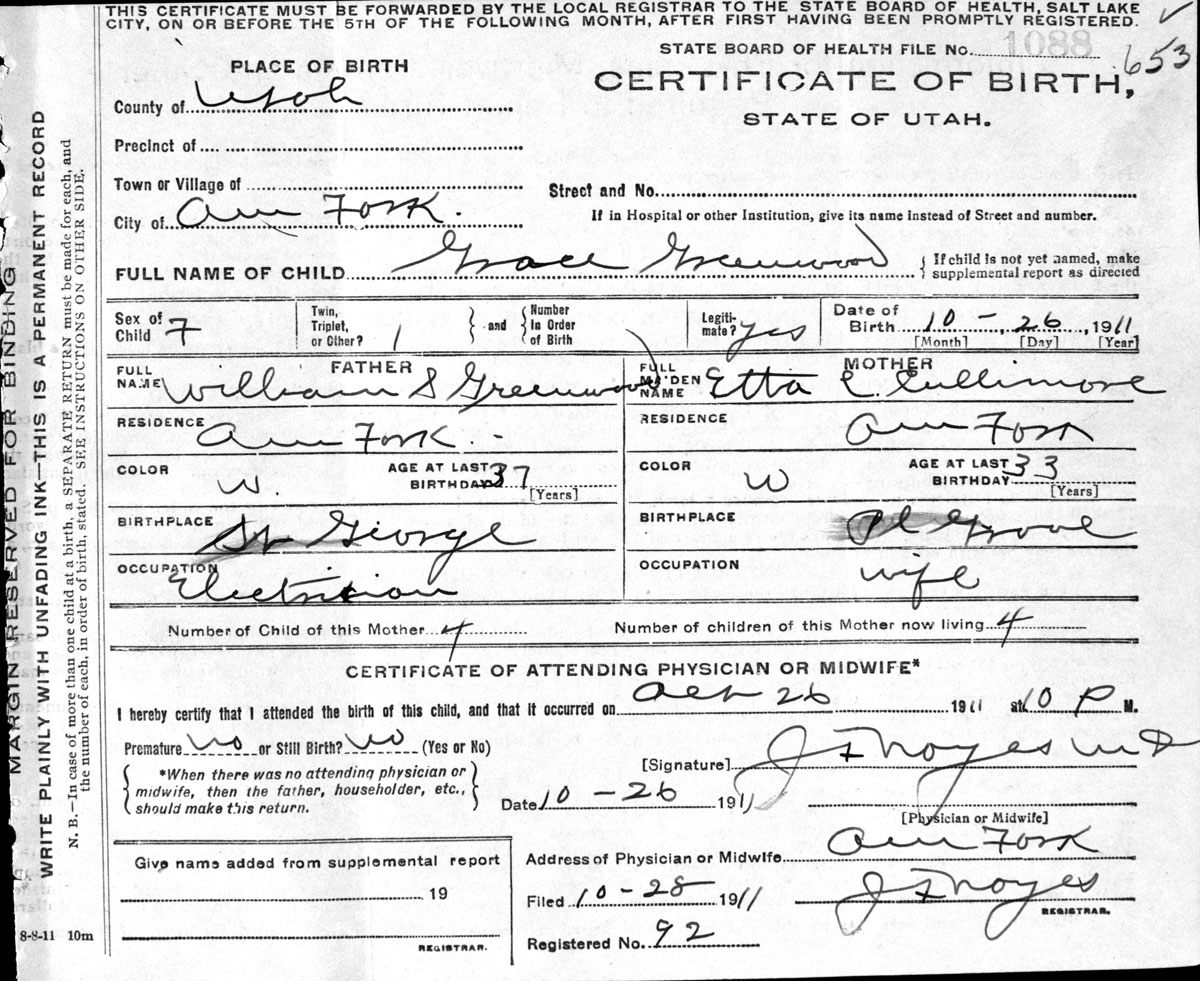 THIS CERTIFICATE MUST BE FORWARDED BY THE LOCAL REGISTRAR TO THE STATE BOARD OF HEALTH, SALT LAKE
CITY, ON OR BEFORE THE 5TH OF THE FOLLOWING MONTH, AFTER FIRST HAVING BEEN PROMPTLY REGISTERED.
STATE BOARD OF HEALTH FILE No. 1088
653
PLACE OF BIRTH
CERTIFICATE OF BIRTH,
STATE OF UTAH.
County of Utah
Precinct of
Town or Village of
Street and No.
City of Am Fork.
If in Hospital or other Institution, give its name instead of Street and number.
FULL NAME OF CHILD Grace Greenwood { If child is not yet named, make
supplemental report as directed
Sex of Child F
Twin, Triplet, or Other? 1
and
Number In Order of Birth
Legiti-mate? Yes
Date of Birth 10 - 26, 1911
[Month] [Day] [Year]
FATHER
FULL NAME William S Greenwood
MOTHER
FULL MAIDEN NAME Etta E. Cullimore
RESIDENCE Am Fork. -
RESIDENCE Am Fork
COLOR W. AGE AT LAST BIRTHDAY 37 [Years]
COLOR W AGE AT LAST BIRTHDAY 33 [Years]
BIRTHPLACE St George
BIRTHPLACE Pl Grove
OCCUPATION Electrician
OCCUPATION wife
Number of Child of this Mother 4
Number of children of this Mother now living 4
CERTIFICATE OF ATTENDING PHYSICIAN OR MIDWIFE*
I hereby certify that I attended the birth of this child, and that it occurred on Oct 26 1911 at 10 P M.
Premature no or Still Birth? no (Yes or No)
*When there was no attending physician or
midwife, then the father, householder, etc.,
should make this return.
[Signature] J F Noyes MD
Date 10 - 26 1911
[Physician or Midwife]
Give name added from supplemental report
19
REGISTRAR.
Address of Physician or Midwife Am Fork
Filed 10 - 28 1911 J F Noyes
REGISTRAR.
Registered No. 92
8-8-11 10m
MARGIN RESERVED FOR BINDING
WRITE PLAINLY WITH UNFADING INK—THIS IS A PERMANENT RECORD
N. B.—In case of more than one child at a birth, a SEPARATE RETURN must be made for each, and
the number of each, in order of birth, stated. SEE INSTRUCTIONS ON OTHER SIDE.